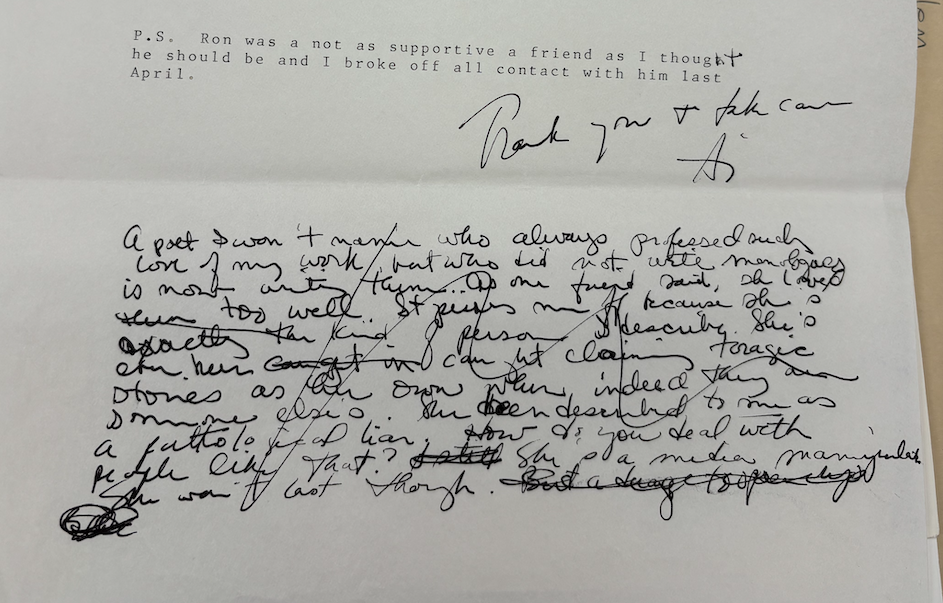 P.S. Ron was a not as supportive a friend as I thought
he should be and I broke off all contact with him last
April.
Thank you + take care
Ai
A poet I won't name who always professed such
love of my work, but who did not write monologues
is now writing them. As one friend said, she loves
them too well. It pisses me off because she's
exactly the kind of person I describe. She's
even been caught in claiming tragic
stories as her own when, indeed they are
someone else's. She been described to me as
a pathological liar. How do you deal with
people like that? She is a media manipulator.
She won't last though. But a